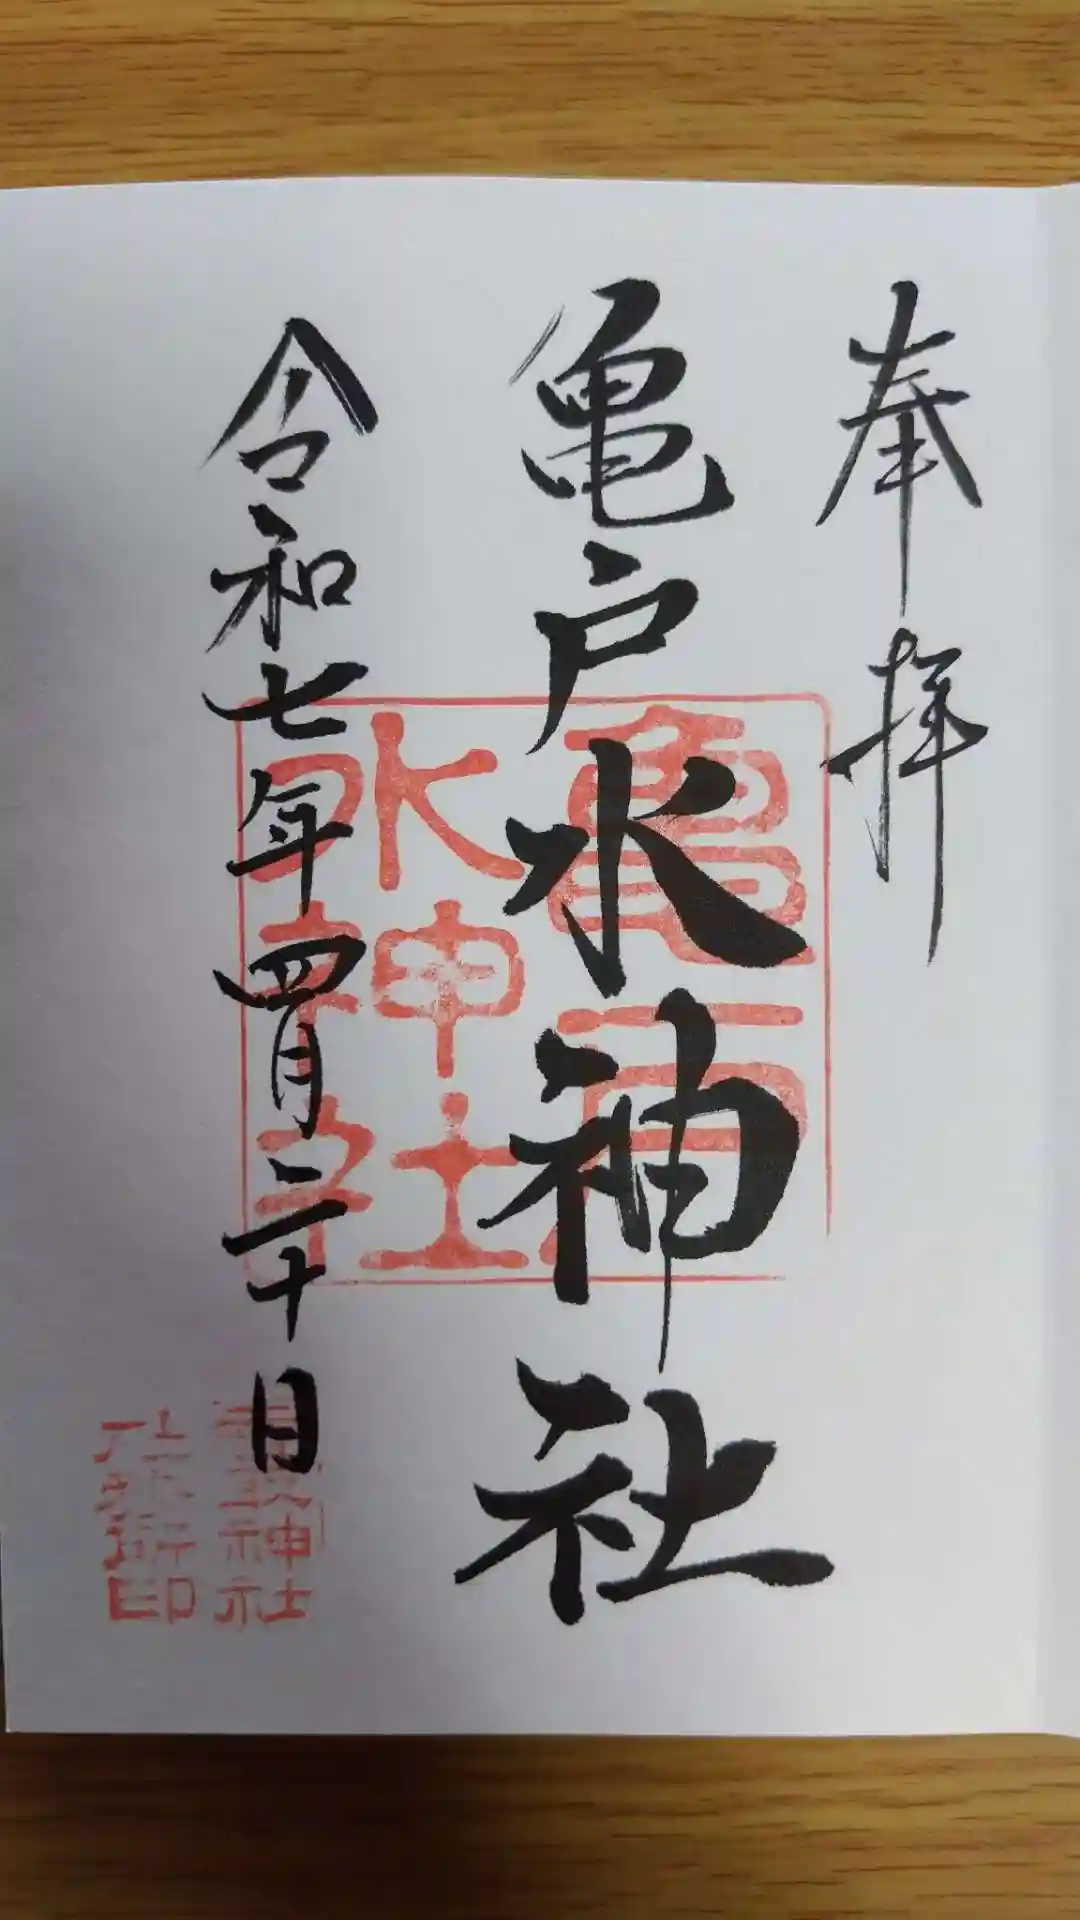 奉拝
亀戸水神社
令和七年四月二十日
亀戸
水神社
神社
印